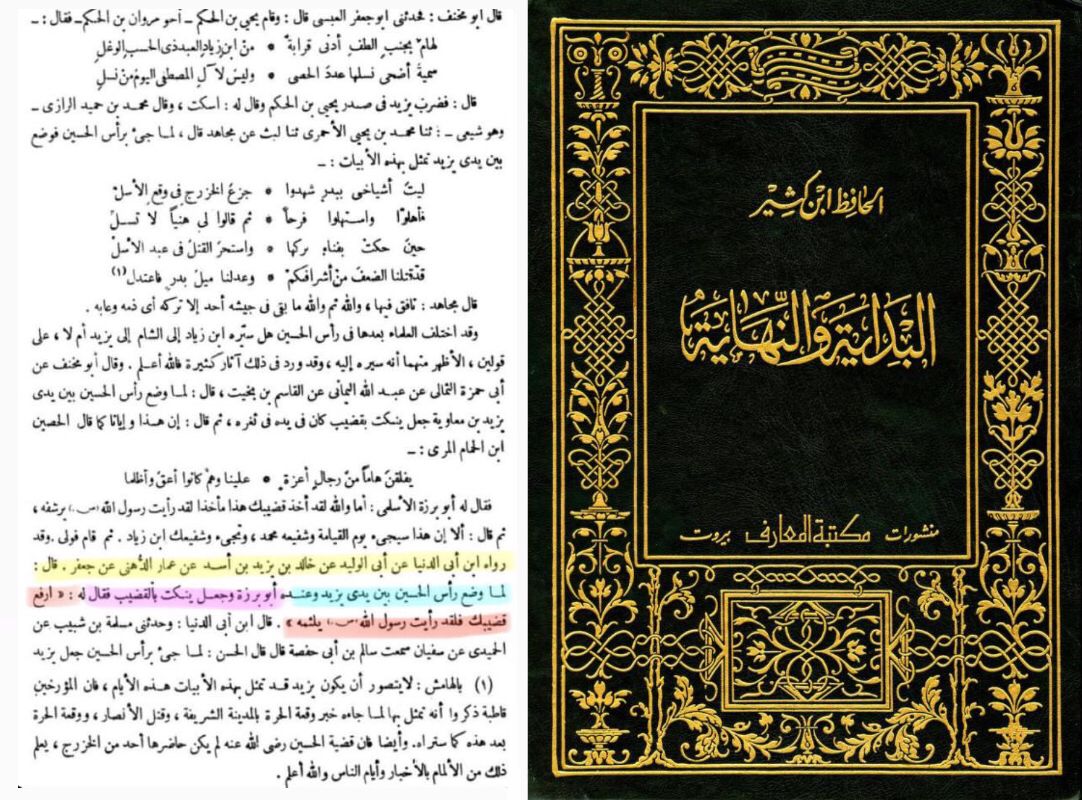 قال أبو مخنف : فحدثنى أبو جعفر العبسى قال : وقام يحيى بن الحكم ــ أخو مروان بن الحكم ــ فقال : ــ
لهام بجنب الطف أدنى قرابة * من ابن زياد العبد ذى الحسب الوغل
سمية أضحى نسلها عدد الحصى * وليس لآل المصطفى اليوم من نسل
قال : فضرب يزيد فى صدر يحيى بن الحكم وقال له : اسكت ، وقال محمد بن حميد الرازى ــ
وهو شيعى ــ : ثنا محمد بن يحيى الأحمرى ثنا ليث عن مجاهد قال ، لما جىء برأس الحسين فوضع
بين يدى يزيد تمثل بهذه الأبيات : ــ
ليت أشياخى ببدر شهدوا * جزع الخزرج فى وقع الأسل
فأهلوا واستهلوا فرحا * ثم قالوا لى هنيا لا تسل
حين حكت بفناء بركها * واستحر القتل فى عبد الأسل
قد قتلنا الضعف من أشرافكم * وعدلنا ميل بدر فاعتدل (١)
قال مجاهد : نافق فيها ، والله ثم والله ما بقى فى جيشه أحد إلا تركه أى ذمه وعابه .
وقد اختلف العلماء بعدها فى رأس الحسين هل سيّره ابن زياد إلى الشام إلى يزيد أم لا ، على
قولين ، الأظهر منهما أنه سيره إليه ، وقد ورد فى ذلك آثار كثيرة فالله أعلم . وقال أبو مخنف عن
أبى حمزة الثمالى عن عبد الله اليمانى عن القاسم بن بخيت ، قال : لما وضع رأس الحسين بين يدى
يزيد بن معاوية جعل ينكت بقضيب كان فى يده فى ثغره ، ثم قال : إن هذا وإيانا كما قال الحصين
ابن الحمام المرى : ــ
يفلقن هاما من رجال أعزة * علينا وهم كانوا أعق وأظلما
فقال له أبو برزة الأسلمى : أما والله لقد أخذ قضيبك هذا مأخذا لقد رأيت رسول الله يرشفه ،
ثم قال : ألا إن هذا سيجىء يوم القيامة وشفيعه محمد ، وتجىء وشفيعك ابن زياد . ثم قام فولى . وقد
رواه ابن أبى الدنيا عن أبى الوليد عن خالد بن يزيد بن أسد عن عمار الدهنى عن جعفر . قال :
لما وضع رأس الحسين بين يدى يزيد وعنده أبو برزة وجعل ينكت بالقضيب فقال له : « ارفع
قضيبك فلقد رأيت رسول الله يلثمه » . قال ابن أبى الدنيا : وحدثنى مسلمة بن شبيب عن
الحميدى عن سفيان سمعت سالم بن أبى حفصة قال قال الحسن : لما جىء برأس الحسين جعل يزيد
(١) بالهامش : لا يتصور أن يكون يزيد قد تمثل بهذه الأبيات هذه الأيام ، فان المؤرخين
قاطبة ذكروا أنه تمثل بها لما جاءه خبر وقعة الحرة بالمدينة الشريفة ، وقتل الأنصار ، ووقعة الحرة
بعد هذه كما ستراه . وأيضا فان قضية الحسين رضى الله عنه لم يكن حاضرها أحد من الخزرج ، يعلم
ذلك من الألمام بالأخبار وأيام الناس والله أعلم .
الحافظ ابن كثير
البداية والنهاية
منشورات مكتبة المعارف بيروت